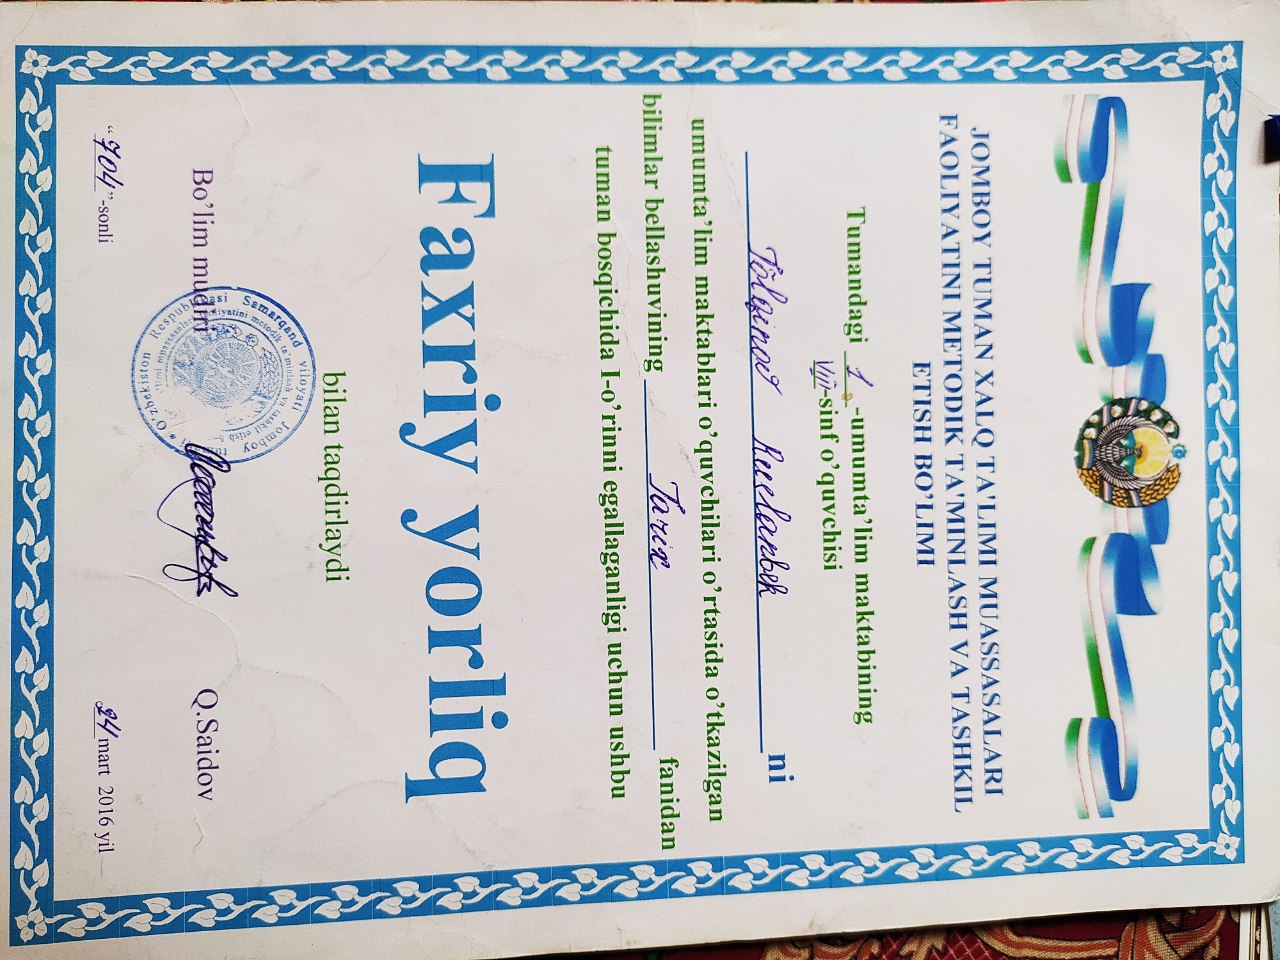 JOMBOY TUMAN XALQ TA'LIMI MUASSASALARI
FAOLIYATINI METODIK TA'MINLASH VA TASHKIL
ETISH BO’LIMI
Tumandagi 1 -umumta’lim maktabining
VIII-sinf o’quvchisi
Tõlqinov Ruslanbek ni
umumta’lim maktablari o’quvchilari o’rtasida o’tkazilgan
bilimlar bellashuvining Tarix fanidan
tuman bosqichida I-o’rinni egallaganligi uchun ushbu
Faxriy yorliq
bilan taqdirlaydi
O'zbekiston Respublikasi Samarqand viloyati Jomboy
metodik ta'minlash va tashkil etish
Bo’lim mudiri
Q.Saidov
“704”-sonli
24 mart 2016 yil